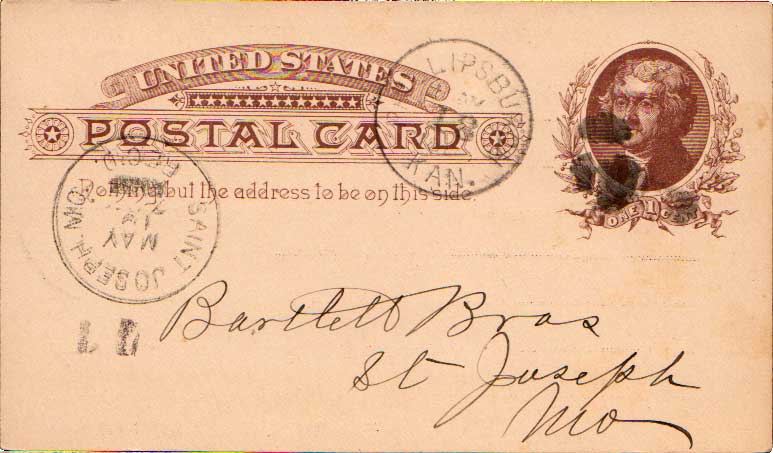 UNITED STATES
POSTAL CARD
Nothing but the address to be on this side.
LIPSBU
KAN.
SAINT JOSEPH, MO.
REC'D.
MAY
ONE 1 CENT
Bartlett Bros
St Joseph
Mo